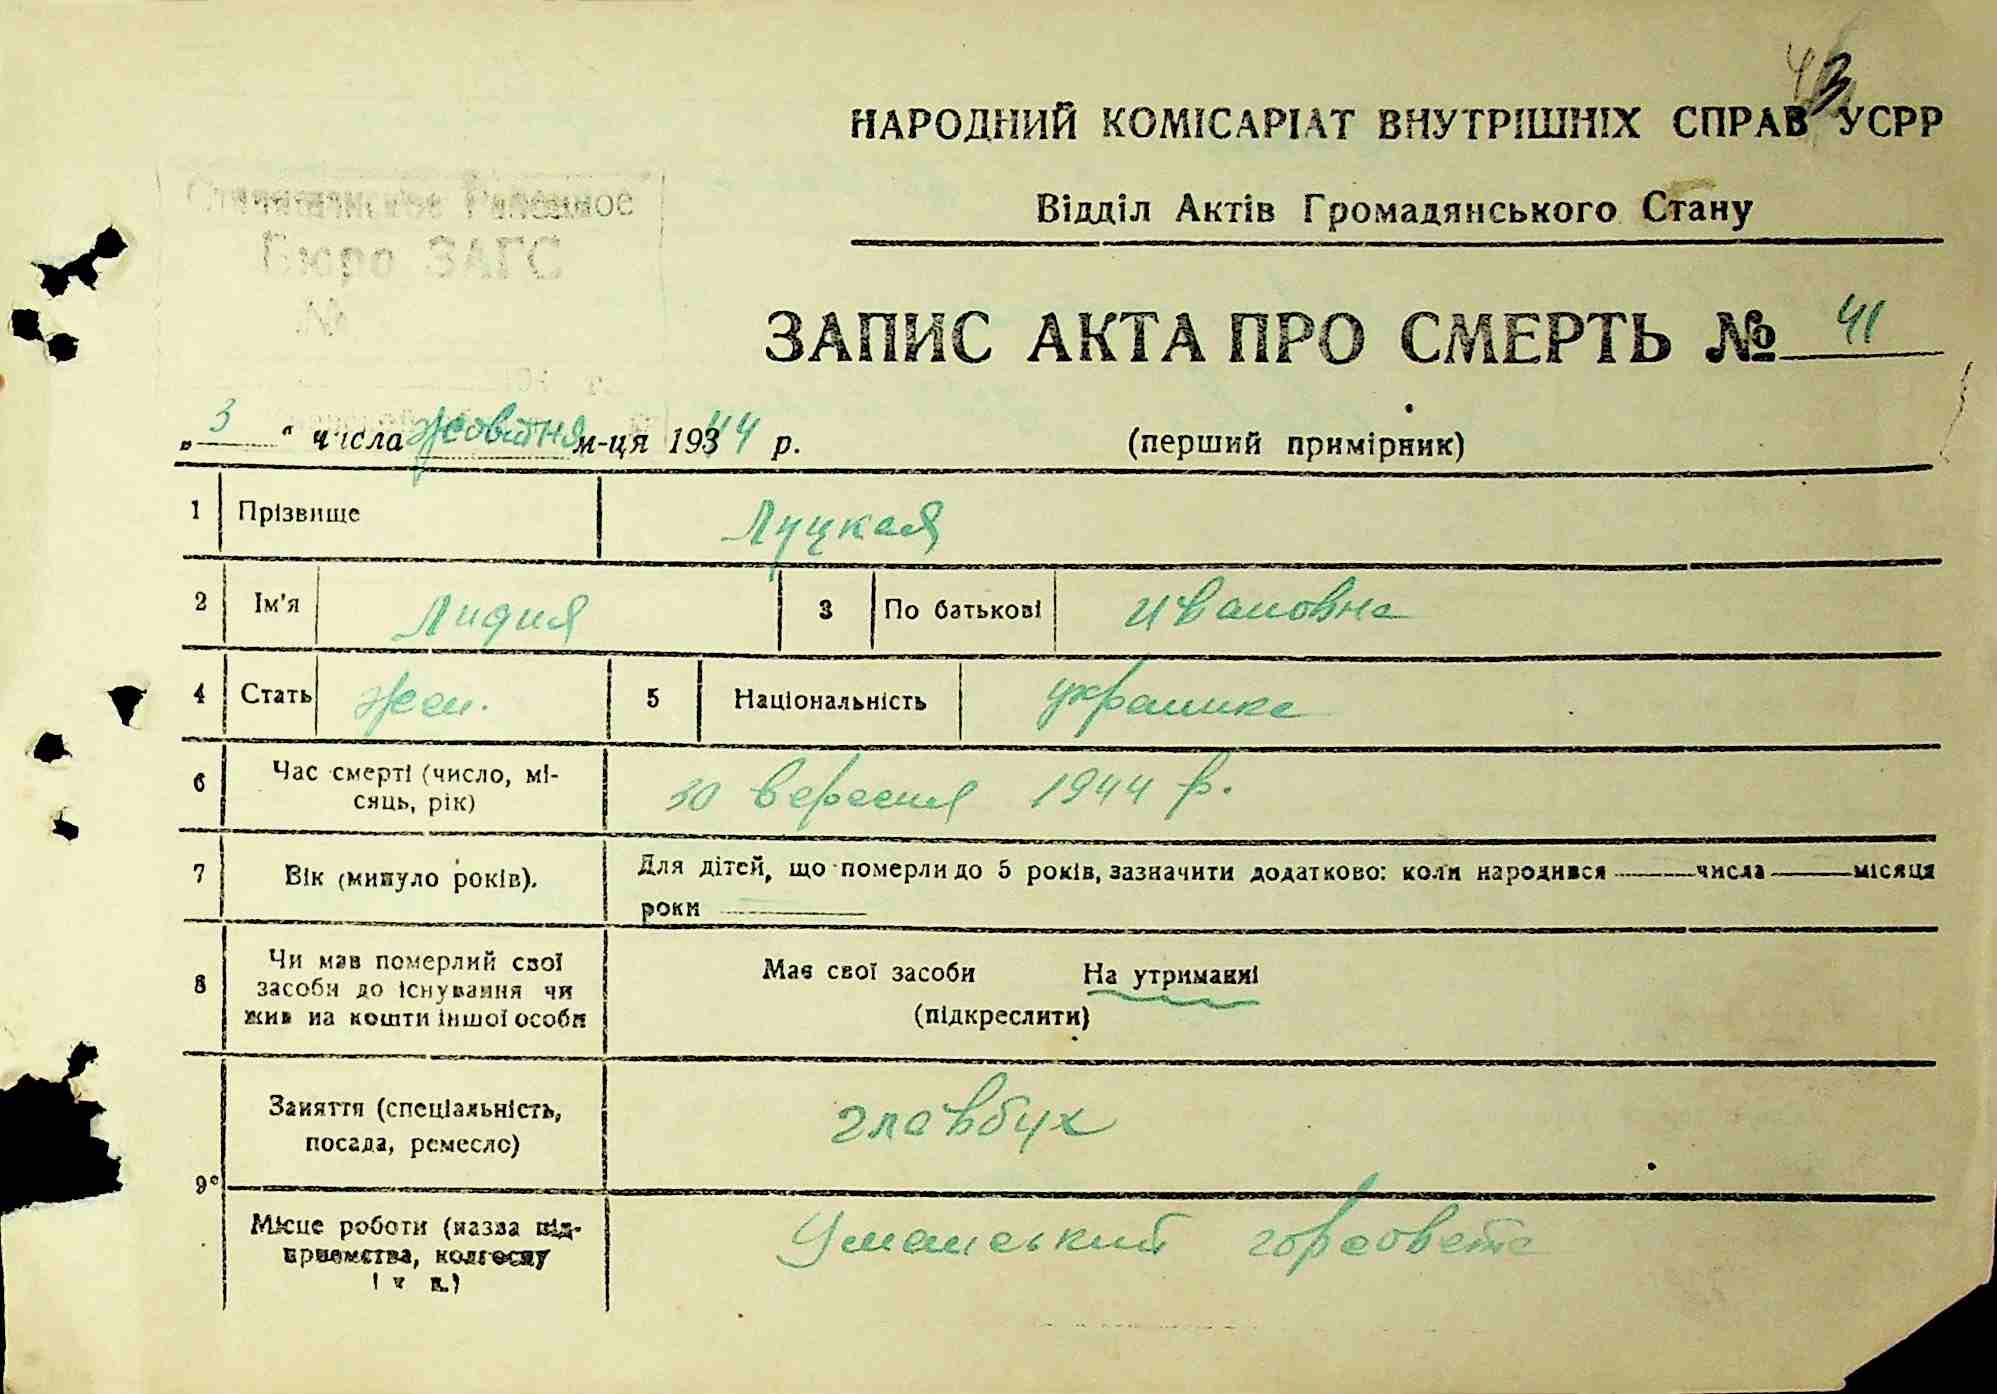 43
НАРОДНИЙ КОМІСАРІАТ ВНУТРІШНІХ СПРАВ УСРР
Відділ Актів Громадянського Стану
Районное
Бюро ЗАГС
№
ЗАПИС АКТА ПРО СМЕРТЬ № 41
„ 3 “ числа жовтня м-ця 19344 р. (перший примірник)
1 Прізвище Луцкая
2 Ім'я Лидия 3 По батькові Ивановна
4 Стать жен. 5 Національність украинка
6 Час смерті (число, мі-
сяць, рік) 30 вересня 1944 р.
7 Вік (минуло років). Для дітей, що померли до 5 років, зазначити додатково: коли народився ——— числа ——— місяця
роки ———
8 Чи мав померлий свої
засоби до існування чи
жив на кошти іншої особи
Має свої засоби На утриманні
(підкреслити)
9 Заняття (спеціальність,
посада, ремесло) главбух
Місце роботи (назва під-
приємства, колгоспу
і т. п.) Уманський горсовета